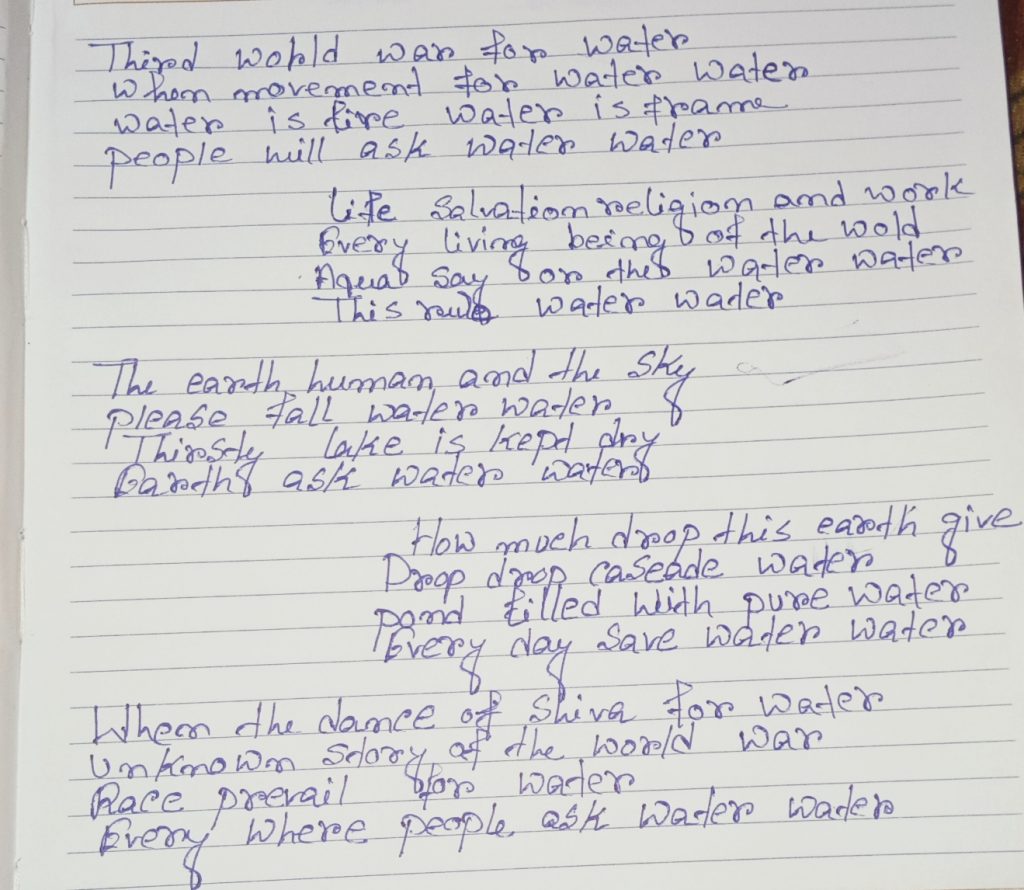 Third world war for water
When movement for water water
water is fire water is frame
people will ask water water
Life Salvation religion and work
Every living being of the wold
Aquas say for the water water
This rule water water
The earth human and the Sky
please fall water water
Thirsty lake is kept dry
Earth ask water water
How much drop this earth give
Drop drop cascade water
pond filled With pure water
Every day Save water water
When the dance of Shiva for water
Unknown Story of the world war
Race prevail for water
Every Where people ask water water